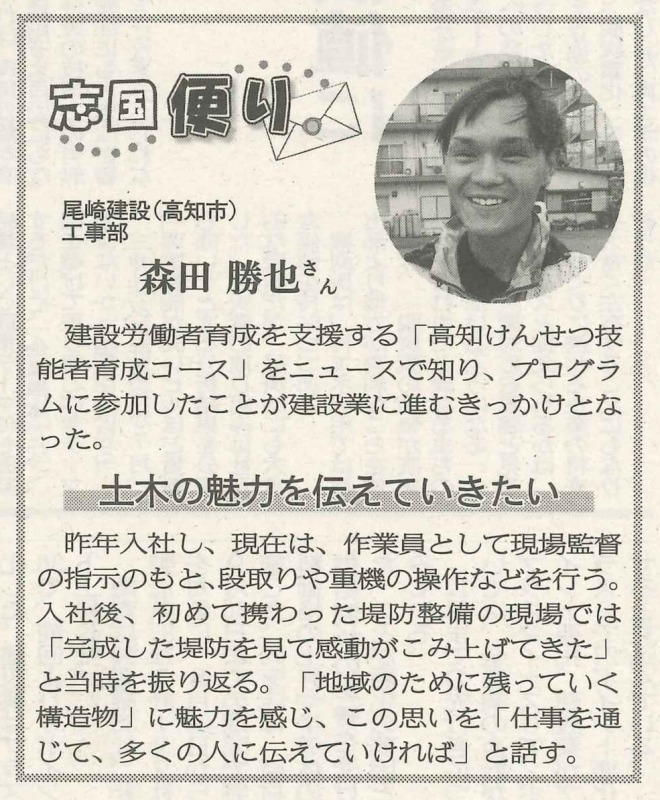 志国便り
尾崎建設(高知市)
工事部
森田 勝也さん
建設労働者育成を支援する「高知けんせつ技
能者育成コース」をニュースで知り、プログラ
ムに参加したことが建設業に進むきっかけとな
った。
土木の魅力を伝えていきたい
昨年入社し、現在は、作業員として現場監督
の指示のもと、段取りや重機の操作などを行う。
入社後、初めて携わった堤防整備の現場では
「完成した堤防を見て感動がこみ上げてきた」
と当時を振り返る。「地域のために残っていく
構造物」に魅力を感じ、この思いを「仕事を通
じて、多くの人に伝えていければ」と話す。